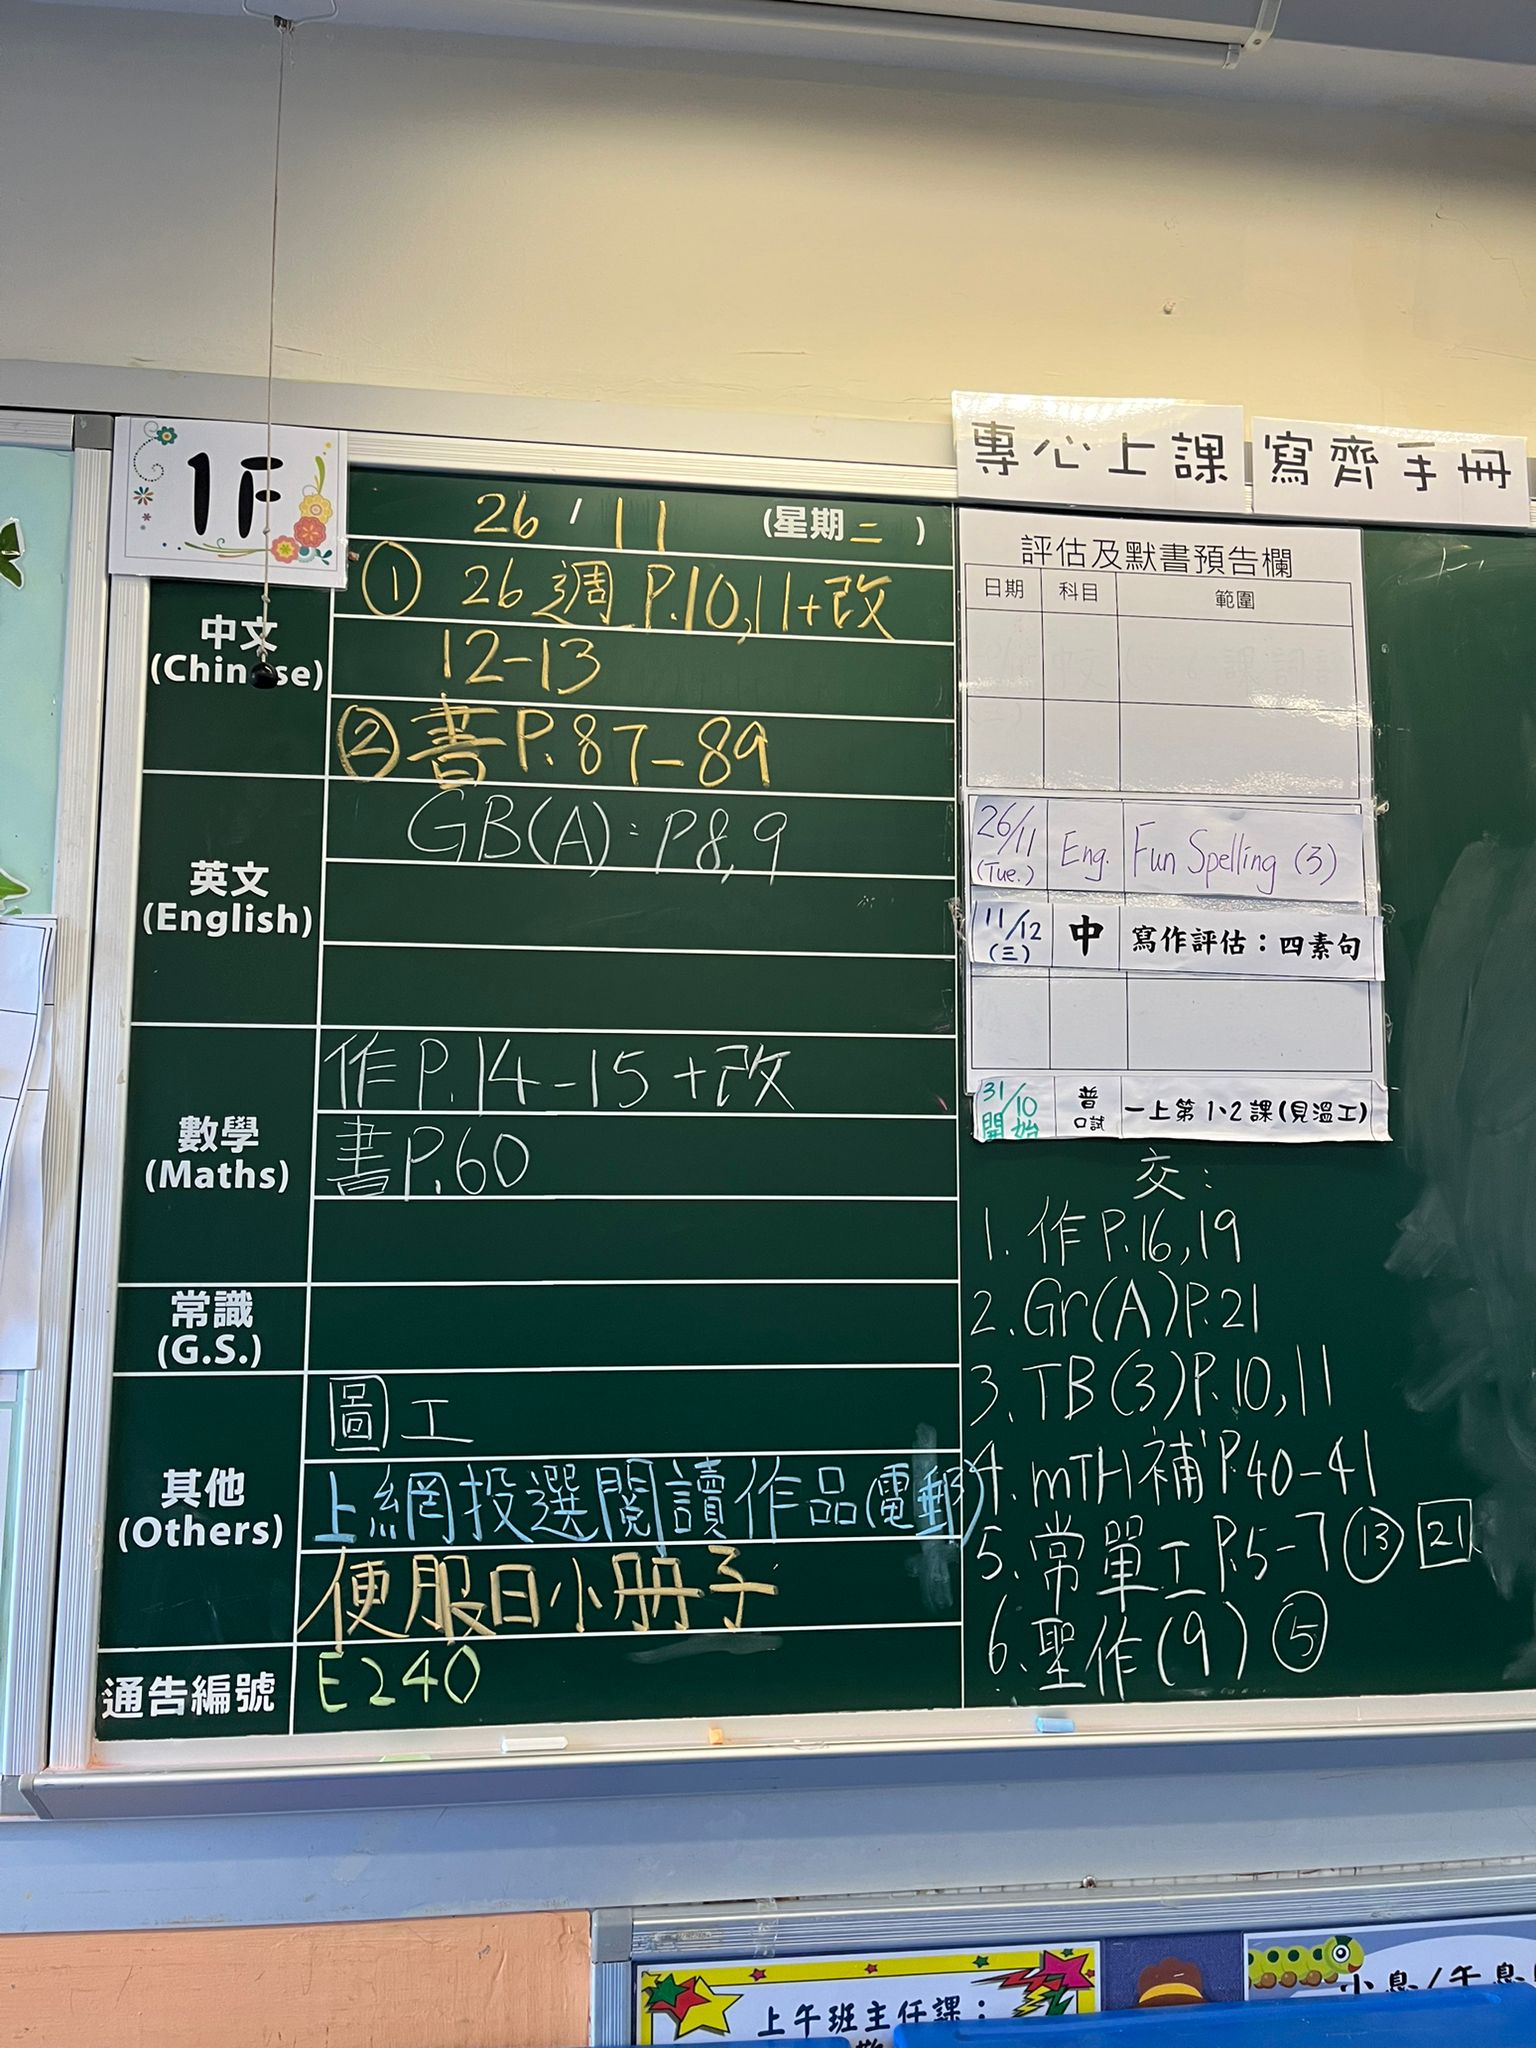 1F
專心上課 寫齊手冊
26 / 11 (星期二)
中文
(Chinese)
① 26週 P.10,11+改
12-13
② 書 P.87-89
英文
(English)
GB(A): P8,9
數學
(Maths)
作 P.14-15 +改
書 P.60
常識
(G.S.)
其他
(Others)
圖工
上網投選閱讀作品(電郵)
便服日小冊子
通告編號
E240
評估及默書預告欄
日期 科目 範圍
26/11 (Tue.) Eng. Fun Spelling (3)
11/12 (三) 中 寫作評估：四素句
31/10 開始 普 口試 一上第1、2課(見溫工)
交：
1. 作 P.16,19
2. Gr(A) P.21
3. TB(3) P.10,11
4. mTH補 P.40-41
5. 常單工 P.5-7 ⑬ 21
6. 聖作(9) ⑤
上午班主任課：
小息/午息